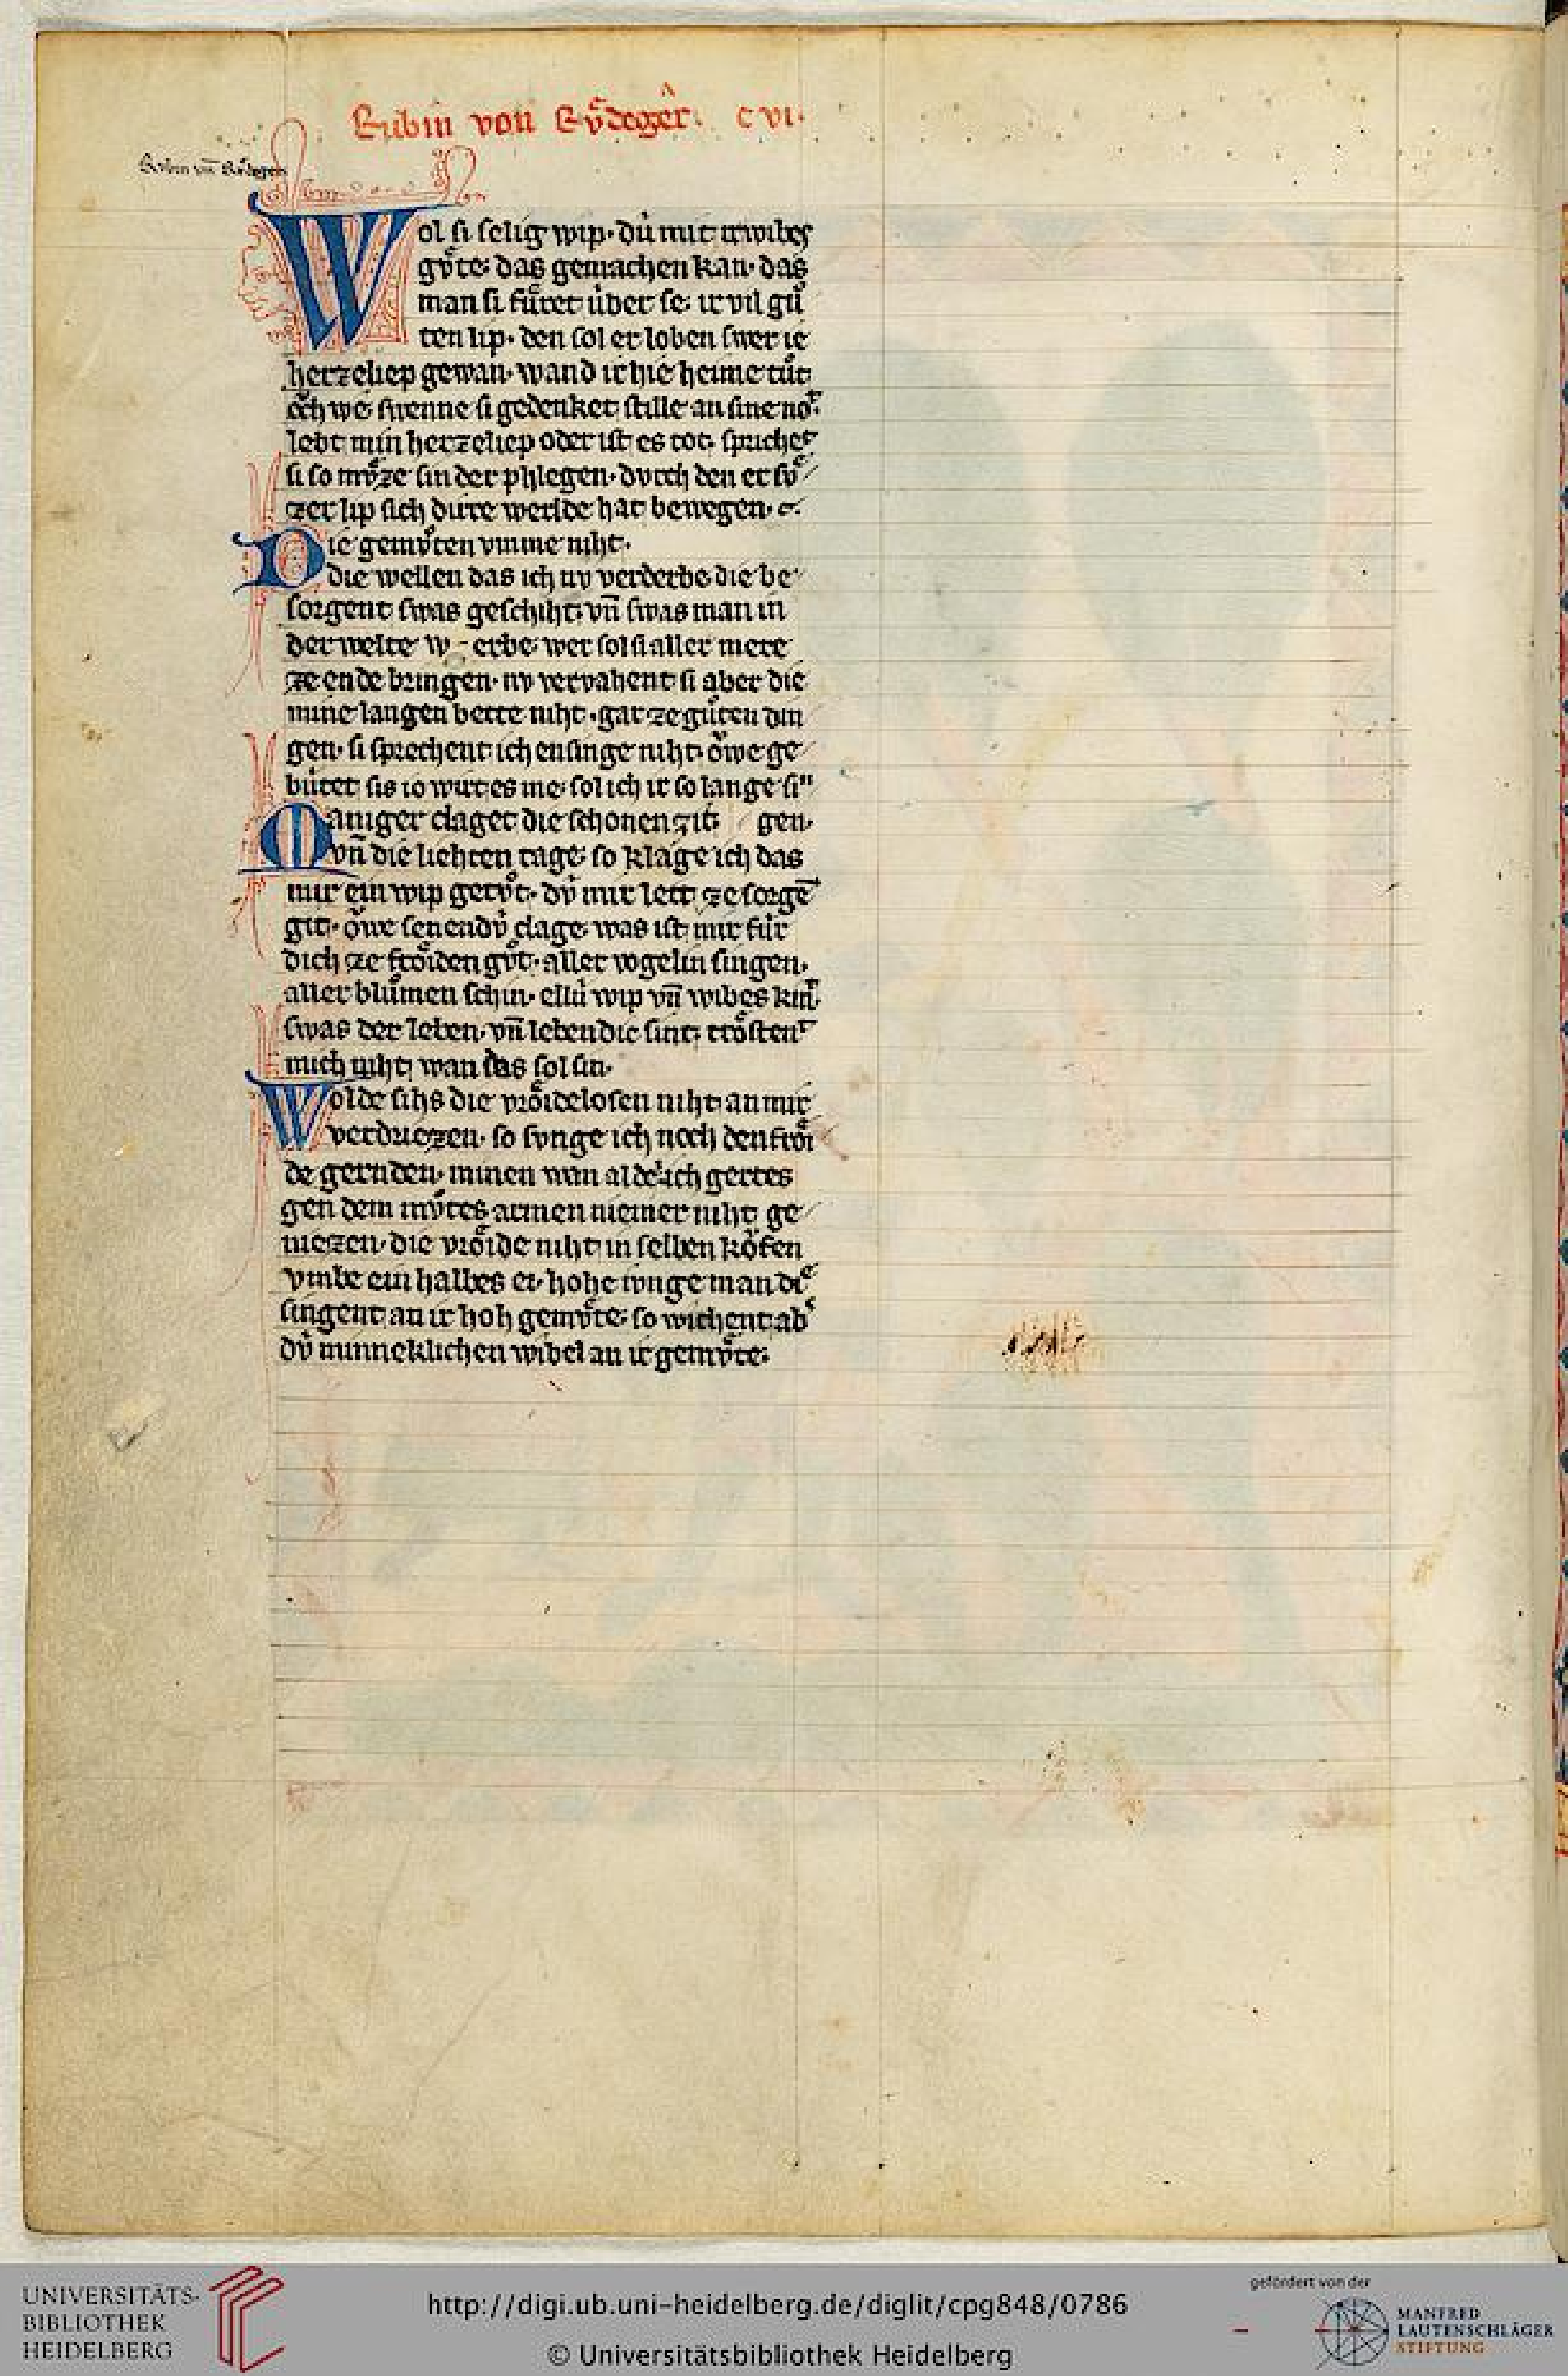 Rubin von Rv̊degêr. cvi.
Rubin vn̄ Rv̊deger
Wol si selig wip· dú mit ir wibes
gvͤte· das gemachen kan· das
man si fuͤret úber se· ir vil guͦ
ten lip· den sol er loben swer ie
herzeliep gewan· wand ir hie heime tuͦt
oͮch we· swenne si gedenket stille an sine not·
lebt min herzeliep oder ist es tot· sprichet
si so mvͤze sin der phlegen· dvrch den er svͤ
zer lip sich dirre werlde hat bewegen·
Die gemvͦten vmme niht·
die wellen das ich nv verderbe· die be
sorgent swas geschiht· vn̄ swas man in
der welte w - erbe· wer sol si aller mere
ze ende bringen· nv vervahent si aber die
mine langen bette niht· gar ze guͦten din
gen· si sprechent ich ensinge niht· oͮwe ge
bútet sis io wirt es me· sol ich ir so lange sin
Maniger claget die schonen zit gen·
vn̄ die liehten tage· so klage ich das
mir ein wip getvͦt· dv́ mir leit ze sorgē
git· oͮwe senendv́ clage· was ist mir fúr
dich ze froͤiden gvͦt· aller vogelin singen·
aller bluͦmen schin· ellú wip vn̄ wibes kint
swas der leben· vn̄ lebendic sint· troͤstent
mich niht wan das sol sin·
Wolde sihs die vroͤidelosen niht an mir
verdriezen· so svnge ich noch den froͤi
de gernden· minen wan al der ich gertes
gen dem mvͦtes armen niemer niht ge
niezen· die vroͤide niht in selben koͮfen
vmbe ein halbes ei· hohe ivnge man die
singent an ir hoh gemvͤte· so wichent ab
dv́ minneklichen wibel an ir gemvͤte·
UNIVERSITÄTS-
BIBLIOTHEK
HEIDELBERG
http://digi.ub.uni-heidelberg.de/diglit/cpg848/0786
© Universitätsbibliothek Heidelberg
gefördert von der
MANFRED
LAUTENSCHLÄGER
STIFTUNG